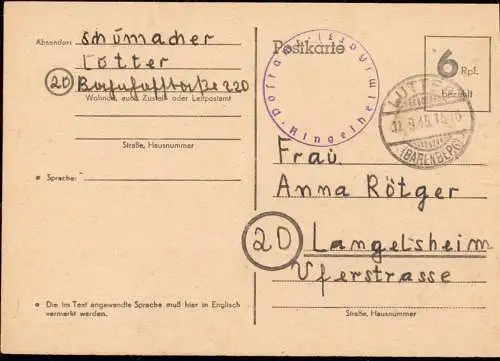 Absender: Schümacher
Lütter
(20) Bahnhofstraße 220
Wohnort, auch Zustell- oder Leitpostamt
Straße, Hausnummer
Sprache:
Die im Text angewandte Sprache muß hier in Englisch
vermerkt werden.
Postkarte
6 Rpf.
bezahlt
LUTTER
(BARENBERG)
Ringelheim
Frau
Anna Rötger
20 Langelsheim
Uferstrasse
Straße, Hausnummer